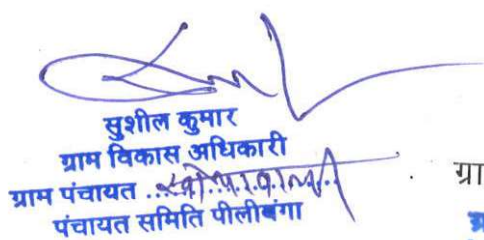 सुशील कुमार
ग्राम विकास अधिकारी
ग्राम पंचायत
पंचायत समिति पीलीबंगा
ग्रा